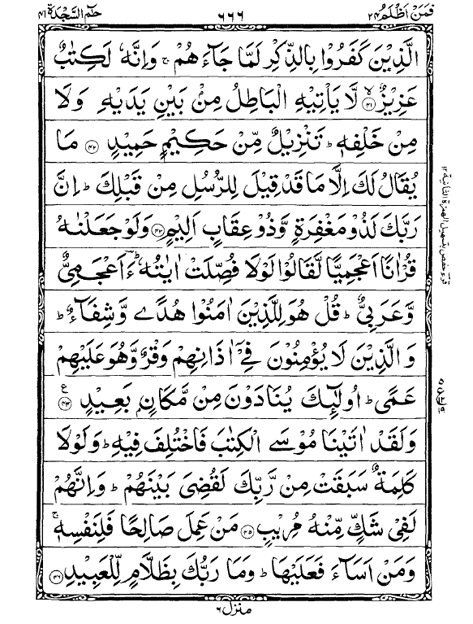 حٰمٓ السَّجْدَة ٤١
٦٦٦
فَمَنْ اَظْلَمُ ٢٤
الَّذِيْنَ كَفَرُوْا بِالذِّكْرِ لَمَّا جَآءَهُمْ ۚ وَاِنَّهٗ لَكِتٰبٌ
عَزِيْزٌ ۙ﴿٤١﴾ لَّا يَاْتِيْهِ الْبَاطِلُ مِنْۢ بَيْنِ يَدَيْهِ وَلَا
مِنْ خَلْفِهٖ ؕ تَنْزِيْلٌ مِّنْ حَكِيْمٍ حَمِيْدٍ ﴿٤٢﴾ مَا
يُقَالُ لَكَ اِلَّا مَا قَدْ قِيْلَ لِلرُّسُلِ مِنْ قَبْلِكَ ؕ اِنَّ
رَبَّكَ لَذُوْ مَغْفِرَةٍ وَّذُوْ عِقَابٍ اَلِيْمٍ ﴿٤٣﴾ وَلَوْ جَعَلْنٰهُ
قُرْاٰنًا اَعْجَمِيًّا لَّقَالُوْا لَوْلَا فُصِّلَتْ اٰيٰتُهٗ ؕ ءَاَعْجَمِىٌّ
وَّعَرَبِىٌّ ؕ قُلْ هُوَ لِلَّذِيْنَ اٰمَنُوْا هُدًى وَّشِفَآءٌ ؕ
وَالَّذِيْنَ لَا يُؤْمِنُوْنَ فِىْۤ اٰذَانِهِمْ وَقْرٌ وَّهُوَ عَلَيْهِمْ
عَمًى ؕ اُولٰٓئِكَ يُنَادَوْنَ مِنْ مَّكَانٍۭ بَعِيْدٍ ﴿٤٤﴾ ع
وَلَقَدْ اٰتَيْنَا مُوْسَى الْكِتٰبَ فَاخْتُلِفَ فِيْهِ ؕ وَلَوْلَا
كَلِمَةٌ سَبَقَتْ مِنْ رَّبِّكَ لَقُضِىَ بَيْنَهُمْ ؕ وَاِنَّهُمْ
لَفِىْ شَكٍّ مِّنْهُ مُرِيْبٍ ﴿٤٥﴾ مَنْ عَمِلَ صَالِحًا فَلِنَفْسِهٖ ۚ
وَمَنْ اَسَآءَ فَعَلَيْهَا ؕ وَمَا رَبُّكَ بِظَلَّامٍ لِّلْعَبِيْدِ ﴿٤٦﴾
منزل ٦